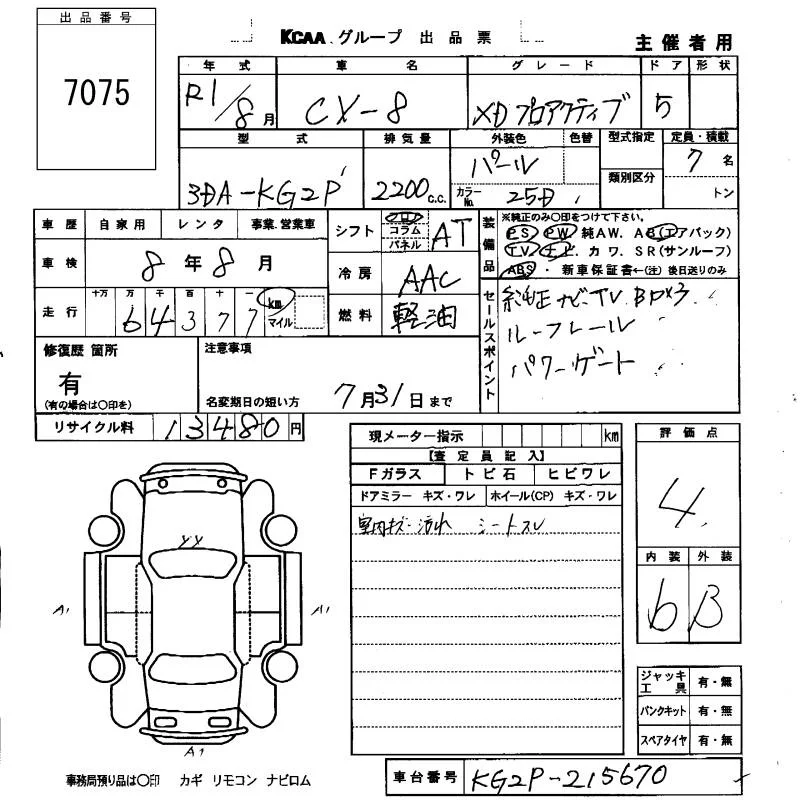 出品番号
7075
KCAA グループ 出品票
主催者用
年式 車名 グレード ドア 形状
R1/8月 CX-8 XD プロアクティブ 5
型式 排気量 外装色 色替 型式指定 定員・積載
3DA-KG2P 2200 C.C. パール 7名
カラーNo. 25D 類別区分 トン
車歴 自家用 レンタ 事業.営業車
シフト フロア コラム パネル AT
装備品 ※純正のみ〇印をつけて下さい。
PS PW 純AW. AB(エアバック)
TV ナビ. カワ. SR(サンルーフ)
ABS ・ 新車保証書←(注) 後日送りのみ
車検 8年8月
冷房 AAC
走行 十万 万 千 百 十 一
64377 km マイル
燃料 軽油
セールスポイント 純正ナビ.TV.BDX3.
ルーフレール
パワーゲート
修復歴 箇所
有
(有の場合は〇印を)
注意事項
名変期日の短い方 7月31日まで
リサイクル料 13480円
現メーター指示 km
【査定員記入】
Fガラス トビ石 ヒビワレ
ドアミラー キズ・ワレ ホイール(CP) キズ・ワレ
室内キズ・汚れ シートスレ
評価点
4
内装 外装
b B
YY
A1 A1
A1
ジャッキ工具 有・無
パンクキット 有・無
スペアタイヤ 有・無
事務局預り品は〇印 カギ リモコン ナビロム
車台番号 KG2P-215670